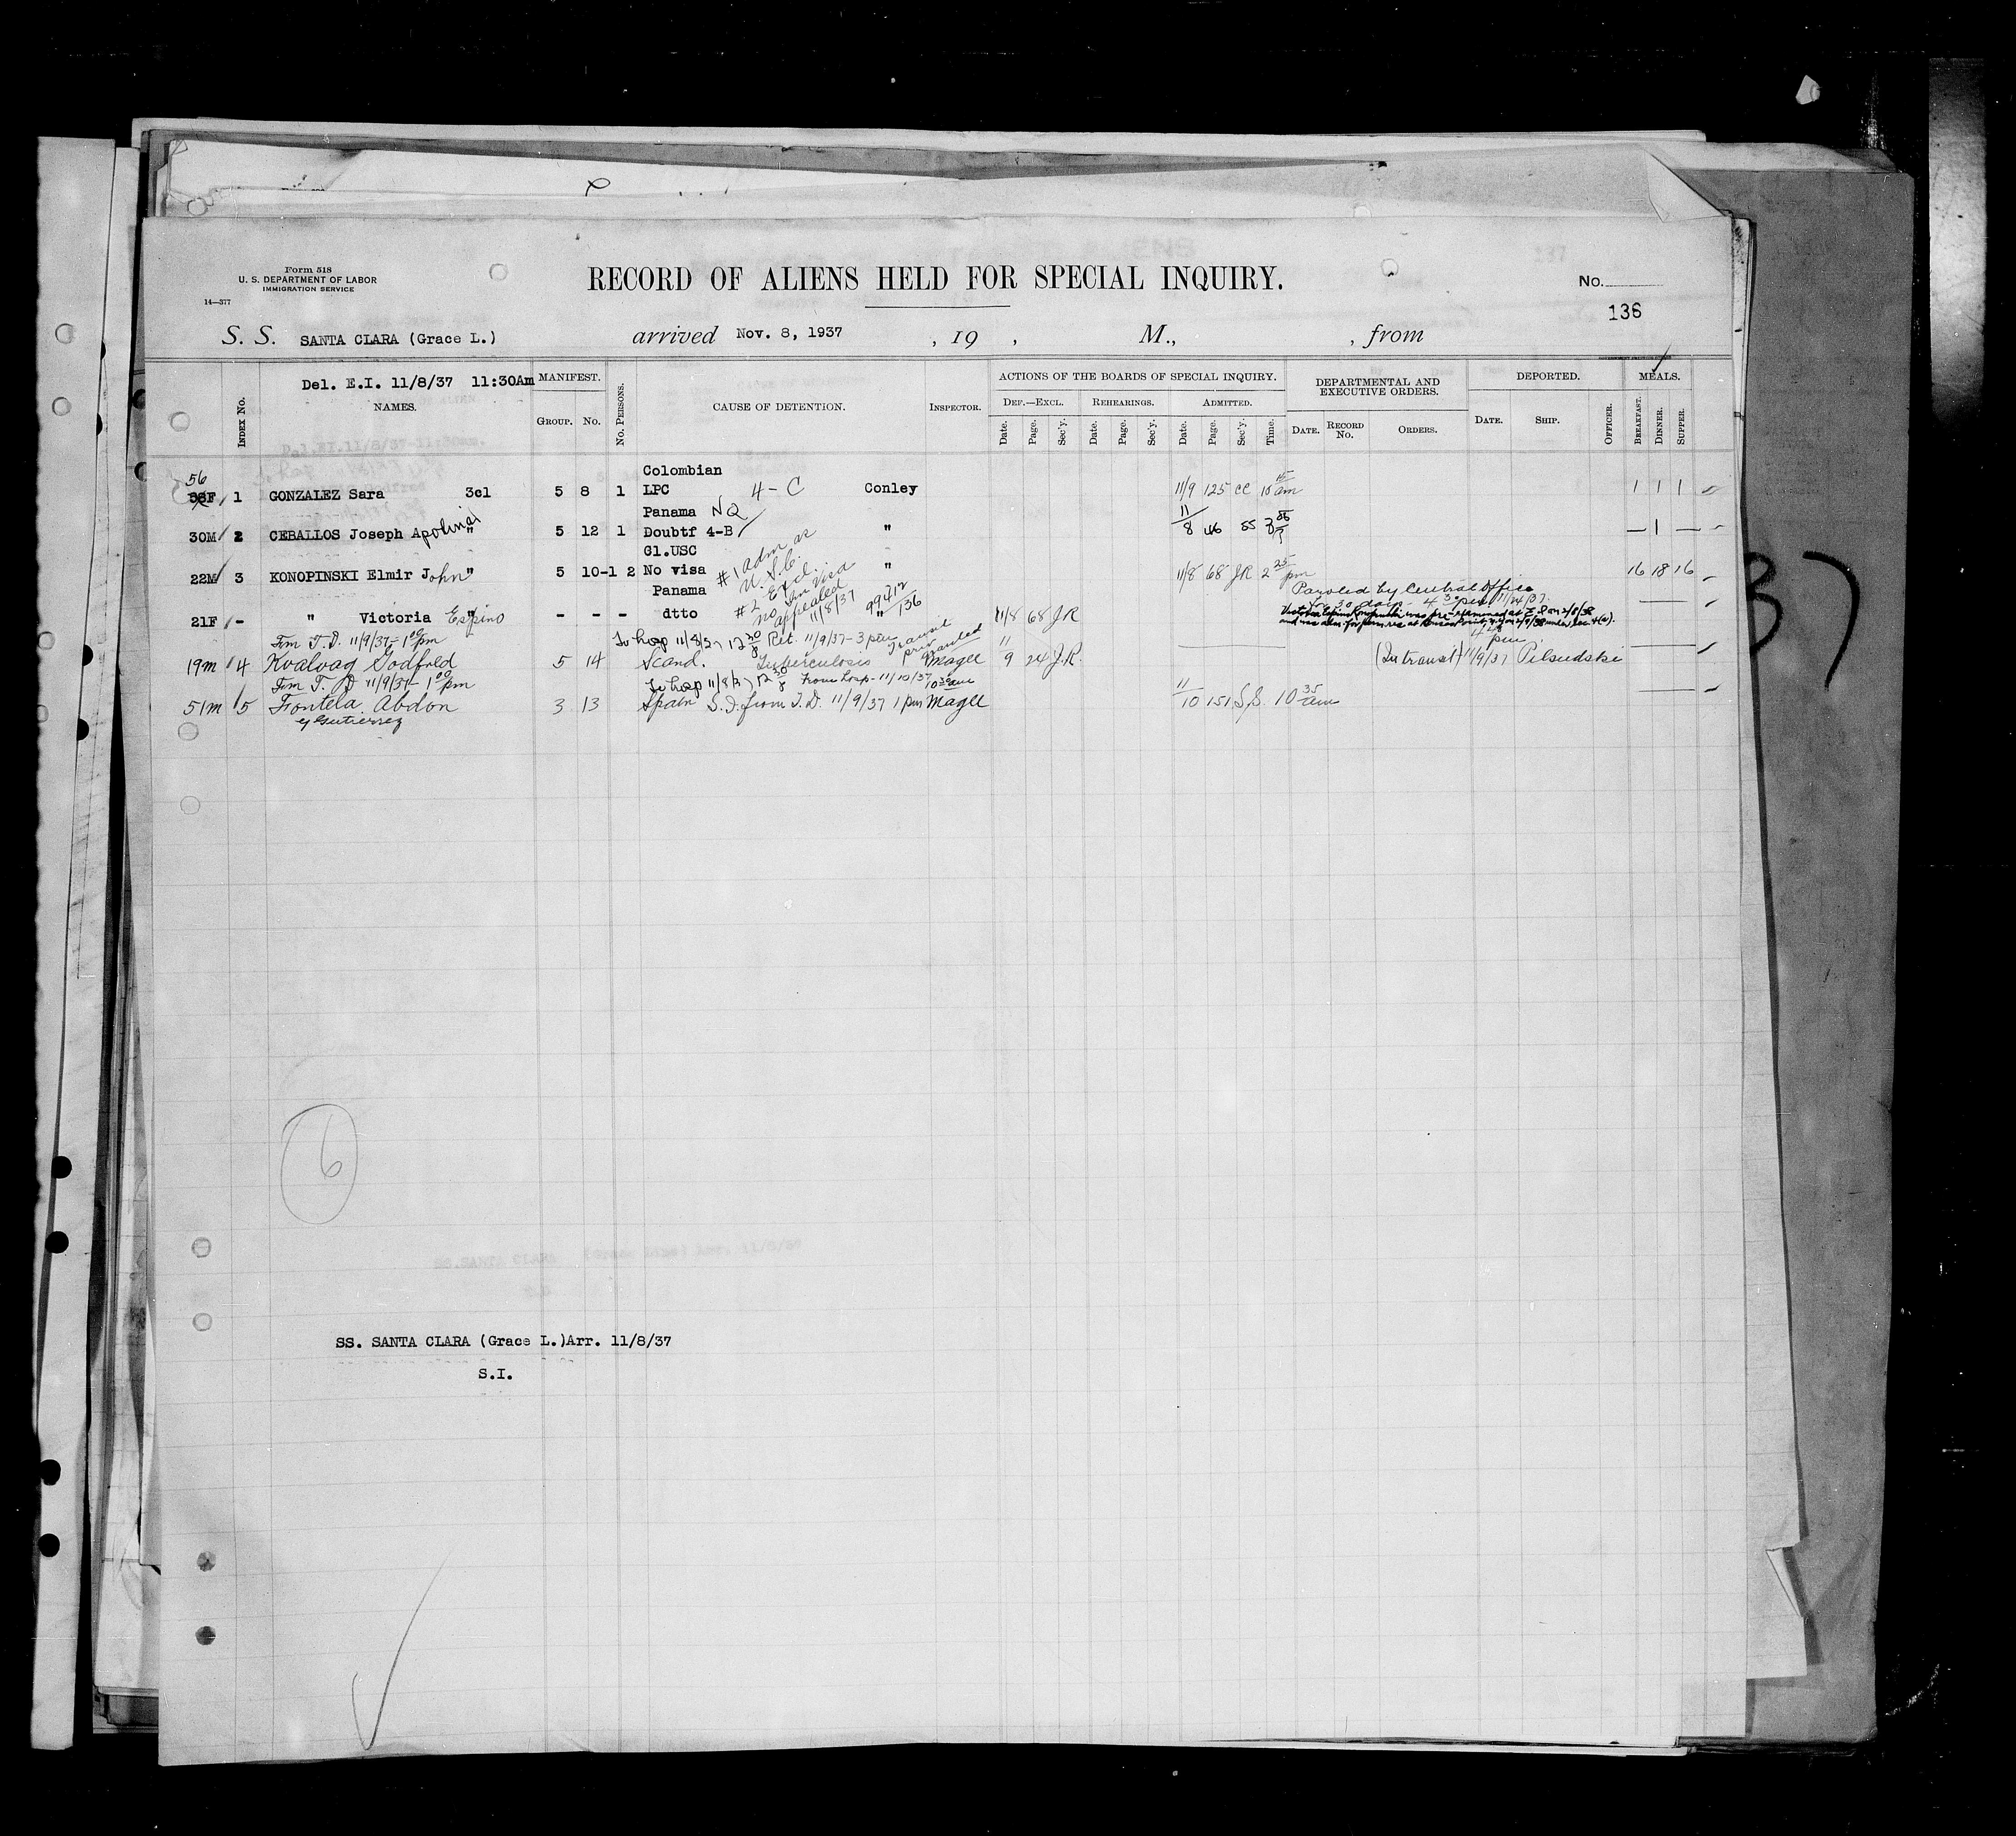 Form 518
U. S. DEPARTMENT OF LABOR
IMMIGRATION SERVICE
14—377
RECORD OF ALIENS HELD FOR SPECIAL INQUIRY.
No.
136
S. S. SANTA CLARA (Grace L.) arrived Nov. 8, 1937 , 19 , M., , from
Del. E.I. 11/8/37 11:30Am
Index No.
NAMES.
MANIFEST.
Group. No.
No. Persons.
CAUSE OF DETENTION.
Inspector.
ACTIONS OF THE BOARDS OF SPECIAL INQUIRY.
Def.—Excl. Rehearings. Admitted.
Date. Page. Sec'y. Date. Page. Sec'y. Date. Page. Sec'y. Time.
DEPARTMENTAL AND EXECUTIVE ORDERS.
Date. Record No. Orders.
DEPORTED.
Date. Ship. Officer.
MEALS.
Breakfast. Dinner. Supper.
56 Colombian
F 1 GONZALEZ Sara 3cl 5 8 1 LPC 4-C Conley 11/9 125 CC 10 15 am 1 1 1
Panama NQ
30M 2 CEBALLOS Joseph Apolinar " 5 12 1 Doubtf 4-B " 11/8 46 SS — 1 —
Cl.USC
22M 3 KONOPINSKI Elmir John " 5 10-1 2 No visa #1 adm as U.S.C. " 11/8 68 JR 2 25 pm 16 18 16
Panama #2 Excl. no Im visa appealed 11/8/37 99412/136
Paroled by Central Office for 30 days - 4 30 pm 11/24/37.
21F - " Victoria Espino " - - - dtto " 11/8 68 JR
Fm T.D. 11/9/37 - 1 00 pm To hosp 11/8/37 12 30 Ret. 11/9/37 - 3 pm Transit privilege granted
19m 4 Kvalvag Godfred 5 14 Scand. Tuberculosis Magee 11/9 24 J.R. (In transit) 11/9/37 Pilsudski
Fm T.D 11/9/37 - 1 00 pm To hosp 11/8/37 12 30 From hosp - 11/10/37 10 30 am
51m 5 Fontela Abdon 3 13 Spain S.I. from T.D. 11/9/37 1 pm Magee 11/10 151 S.S. 10 35 am
y Gutierrez
6
SS. SANTA CLARA (Grace L.)Arr. 11/8/37
S.I.
37